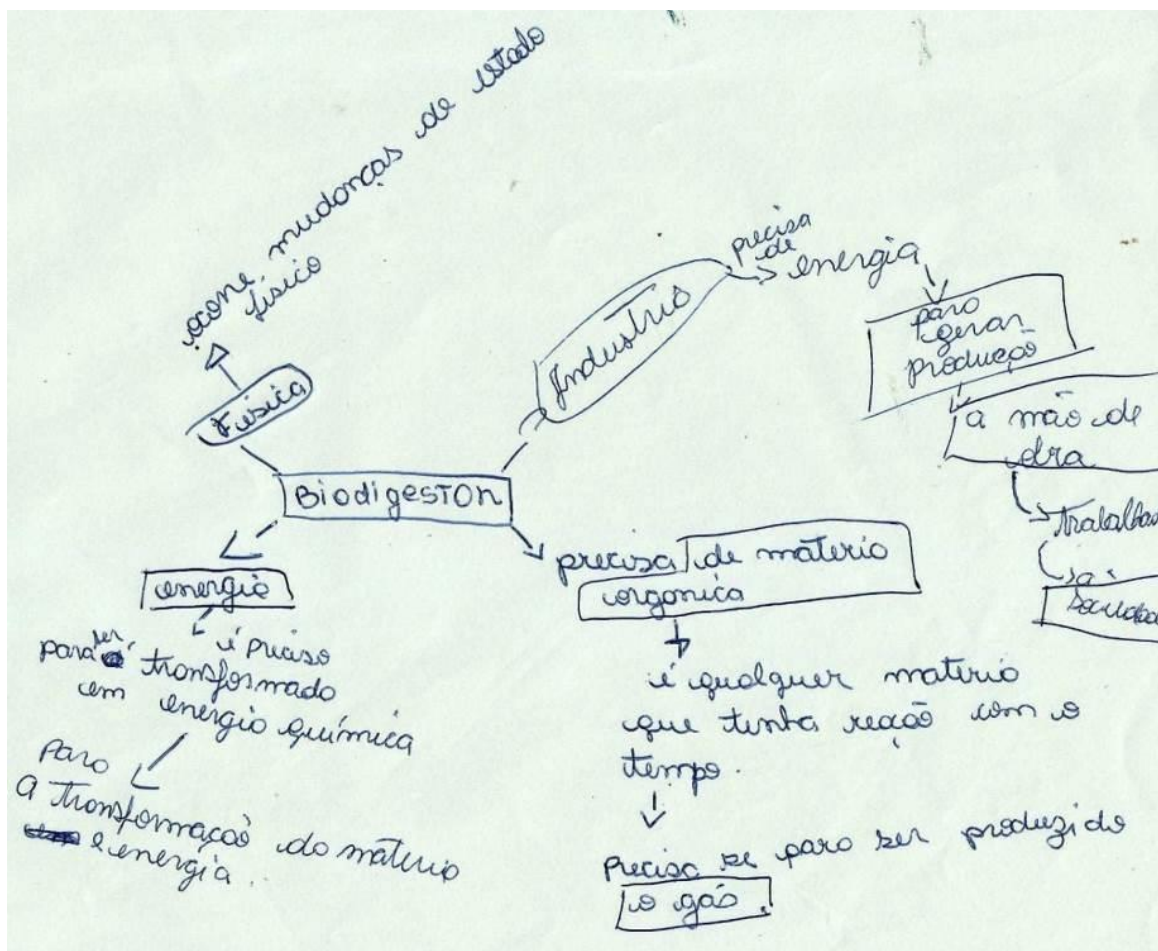 ocorre mudanças de estado
físico
Física
Biodigestor
Industria
precisa
de
energia
para
gerar
produção
a mão de
obra
trabalhar
a
energia
é preciso
para ser transformado
em energia química
Para
a transformação da materia
e energia.
precisa de materia
organica
é qualquer materia
que tenha reação com o
tempo.
Precisa se para ser produzido
o gás.